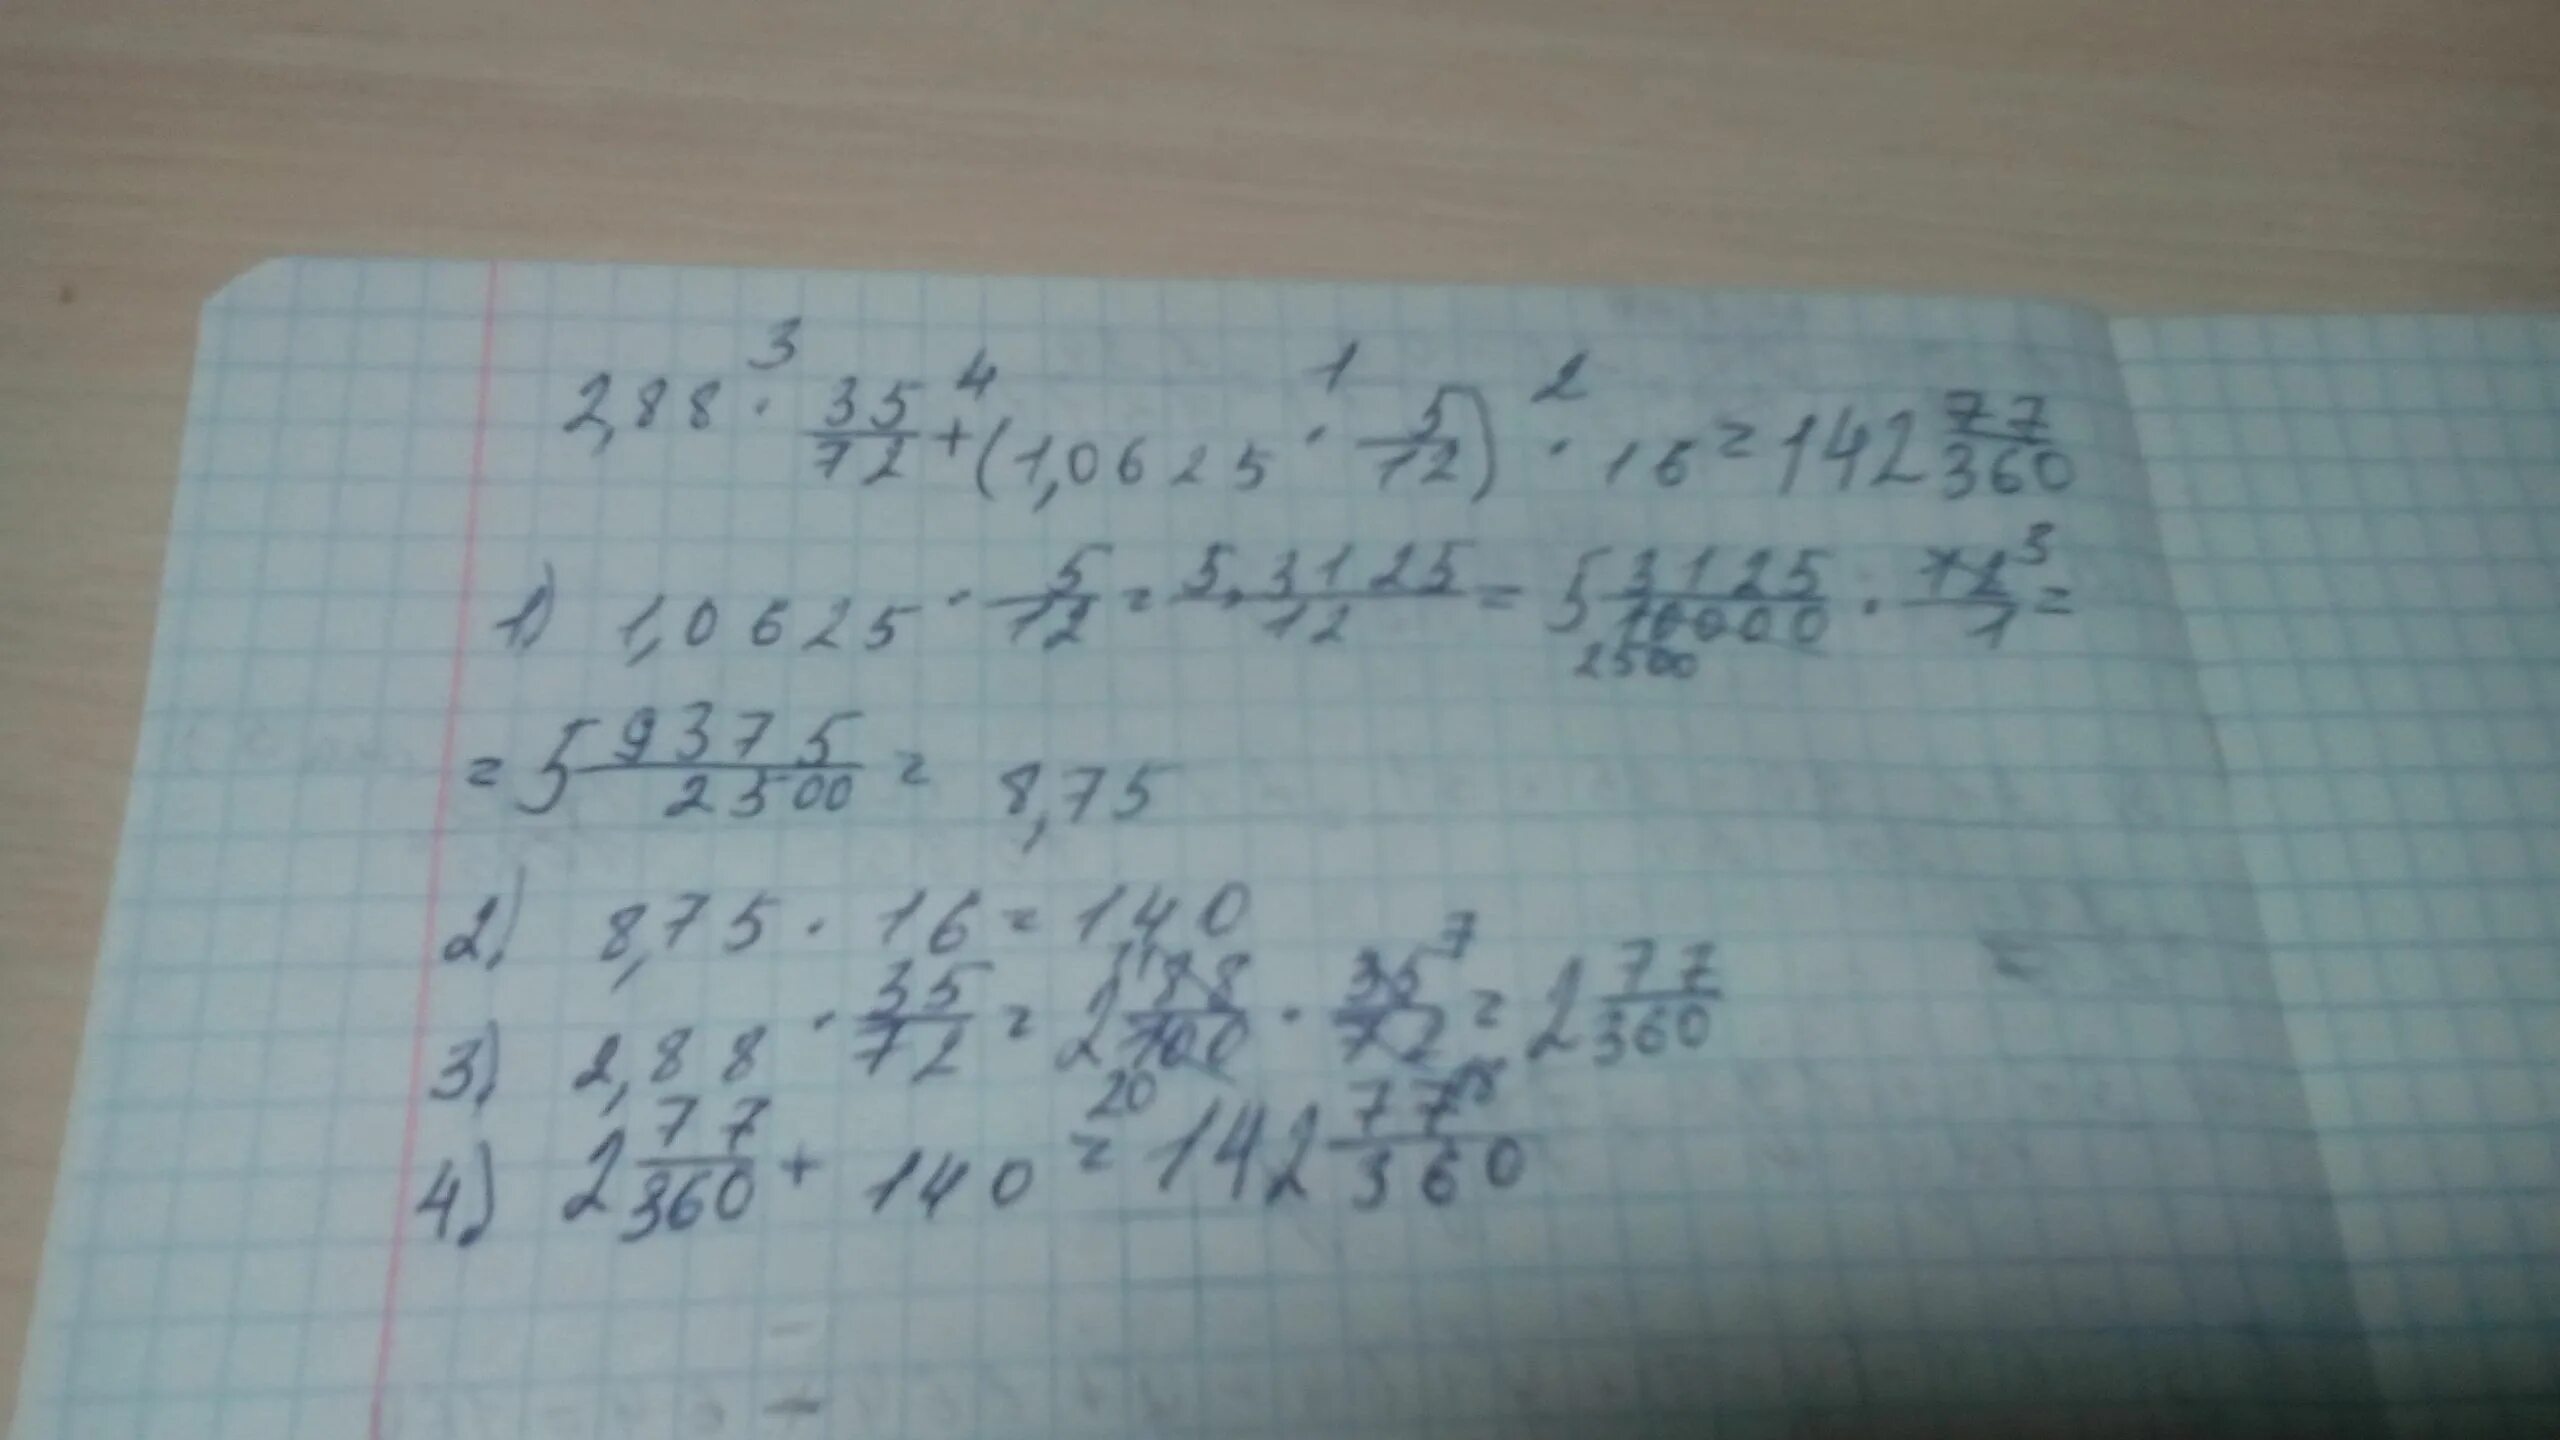 2,88 · 35/72 + (1,0625 · 5/12) · 16 = 142 77/360
3 4 1 2
1) 1,0625 · 5/12 = 5,3125/12 = 5 3125/10000 · 12/1 =
3
2500
= 5 9375/2500 = 8,75
2) 8,75 · 16 = 140
3) 2,88 · 35/72 = 2 88/100 · 35/72 = 2 77/360
11 7
20 18
4) 2 77/360 + 140 = 142 77/360